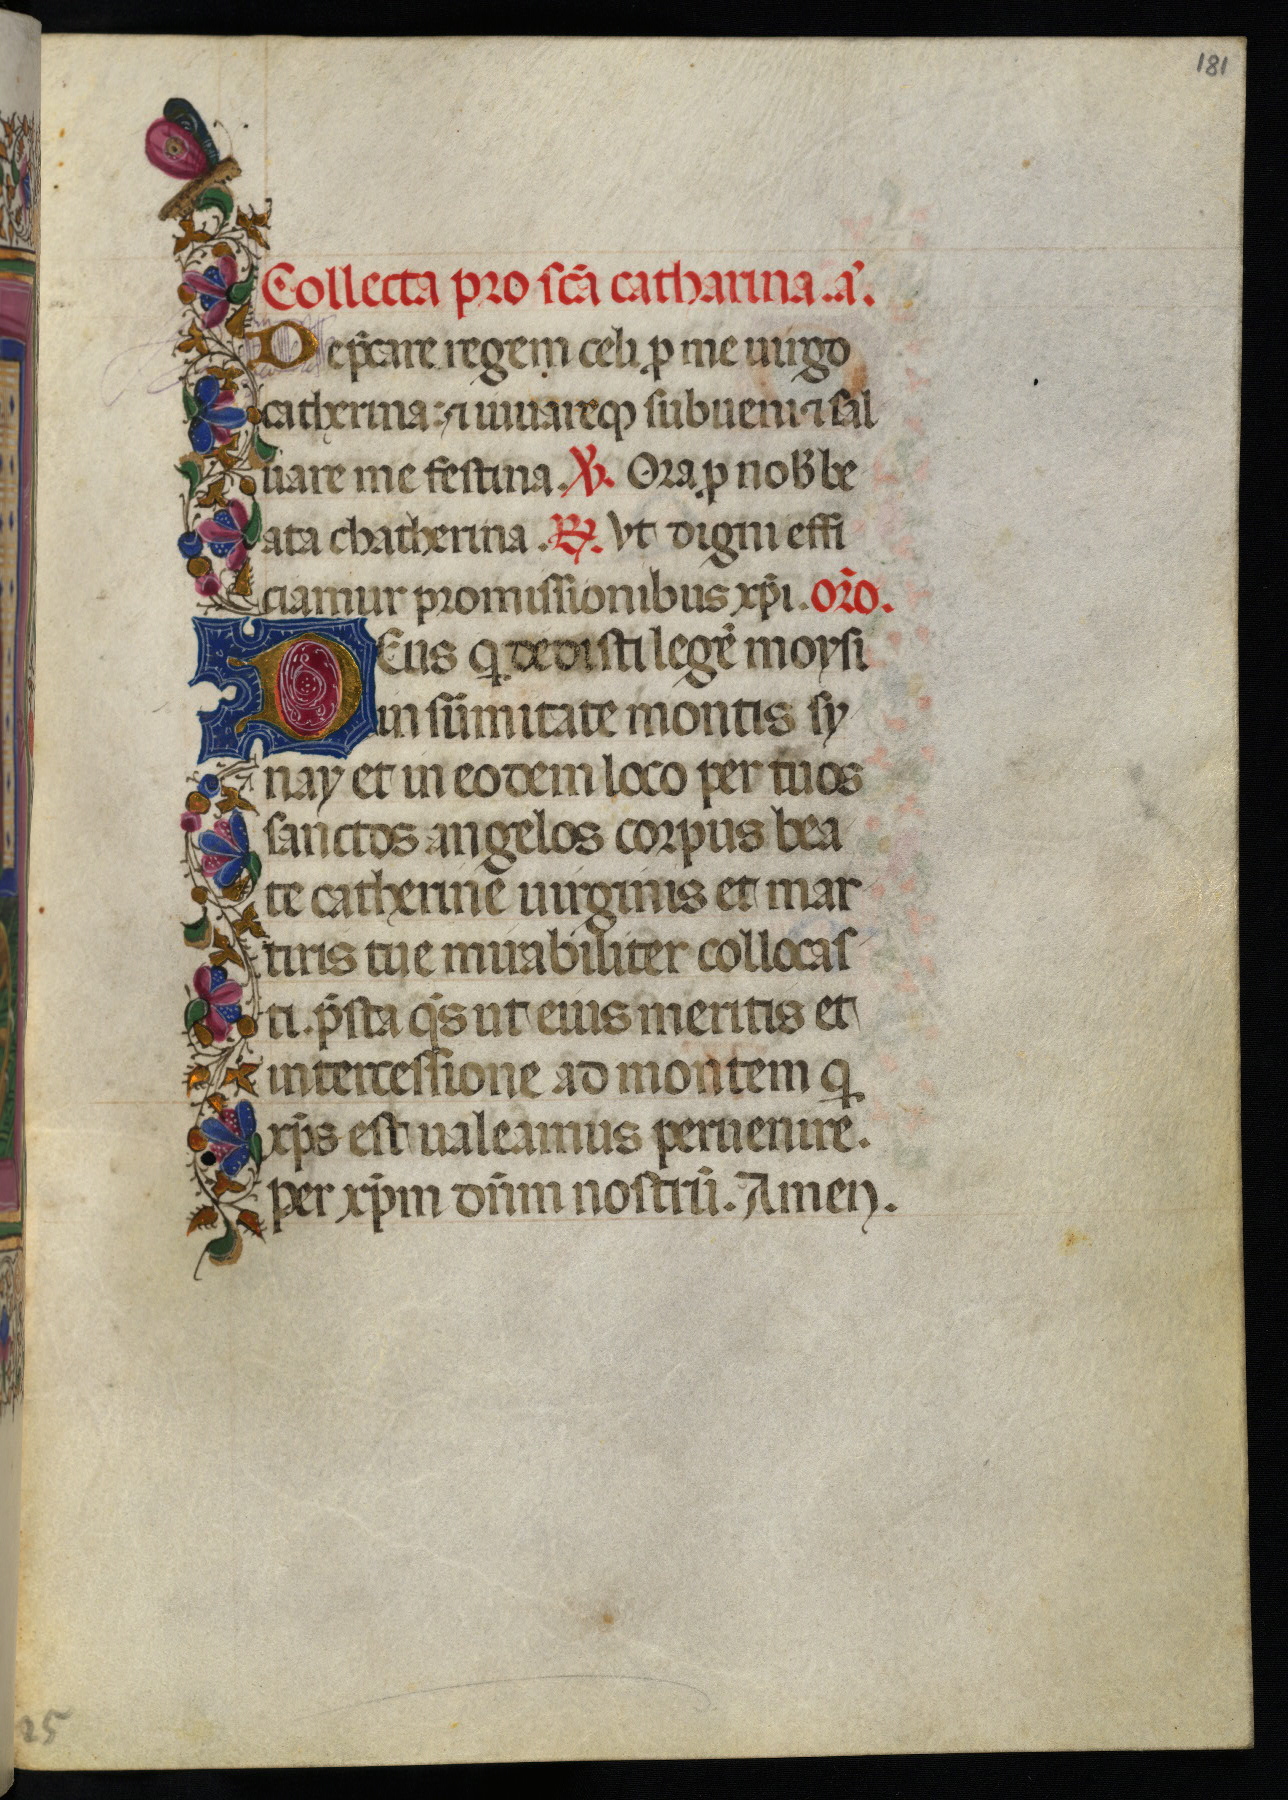 181
Collecta pro sc̄a catharina .a͂.
Dep̄care regem celi ꝑ me uirgo
catherina: ⁊ iuuareqꝫ subueni ⁊ sal
uare me festina. ℣. Ora ꝑ nob̄ be
ata chatherina .℟. Vt digni effi
ciamur promissionibus xp̄i. or̄o.
DEus q̣ dedisti legē moysi
in sūmitate montis sy
nay et in eodem loco per tuos
sanctos angelos corpus bea
te catherine uirginis et mar
tiris tue mirabiliter collocas
ti. p̄sta q̄s ut eius meritis et
intercessione ad montem q̣
xp̄s est ualeamus peruenire.
per xp̄m dn̄m nostrū. Amen.
25